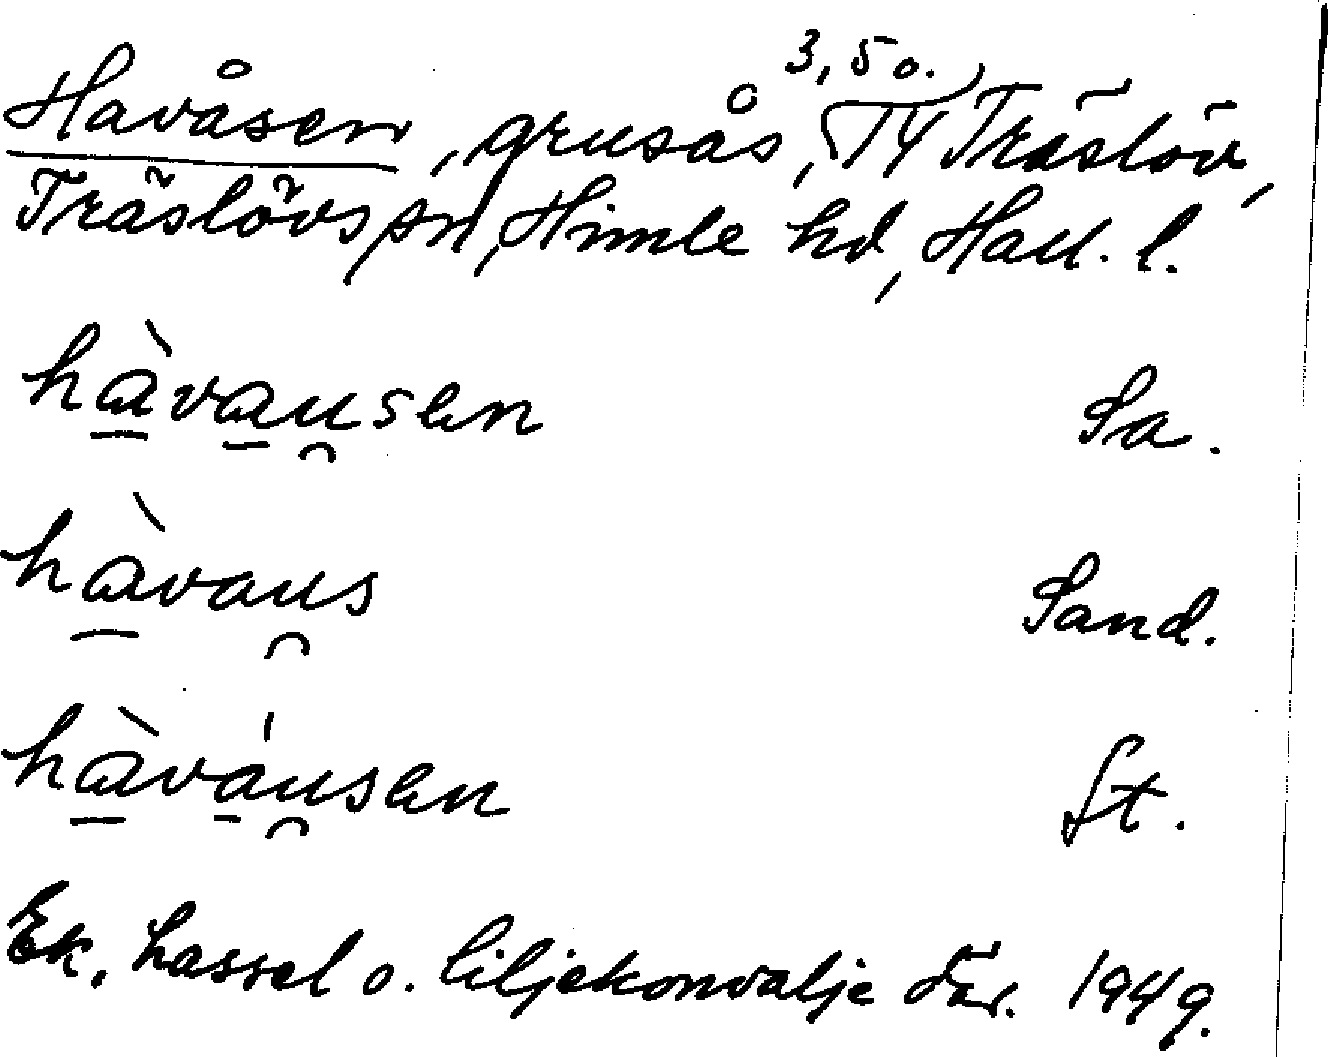 3, 5 o.
Havåsen, grusås, TY Träslöv,
Träslövs sn, Himle hd, Hall. l.
hàvau̯sen Sa.
hàvau̯s Sand.
hàváu̯sen St.
Ek, hassel o. liljekonvalje där. 1949.